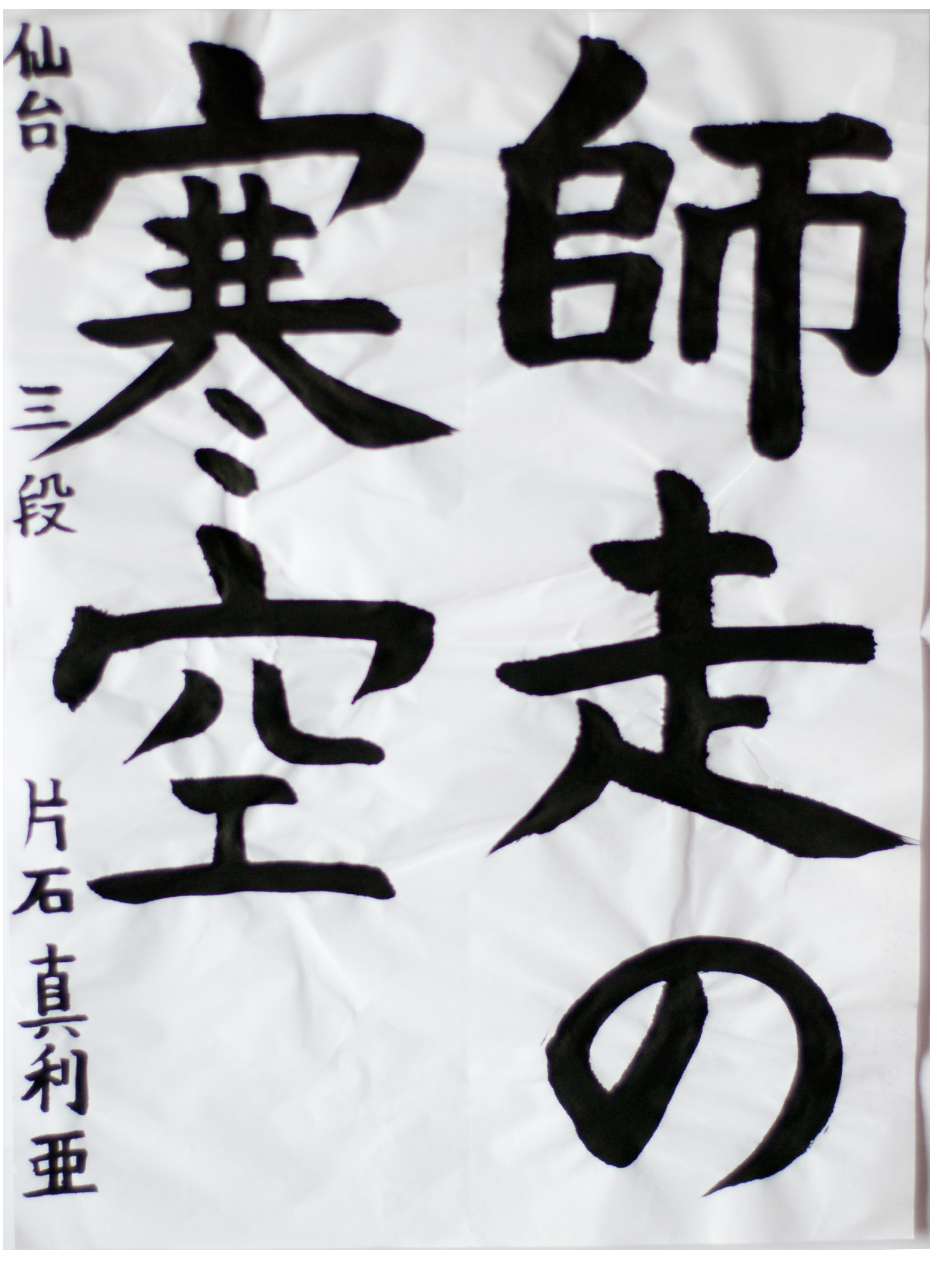 師走の
寒空
仙台 三段 片石 真利亜